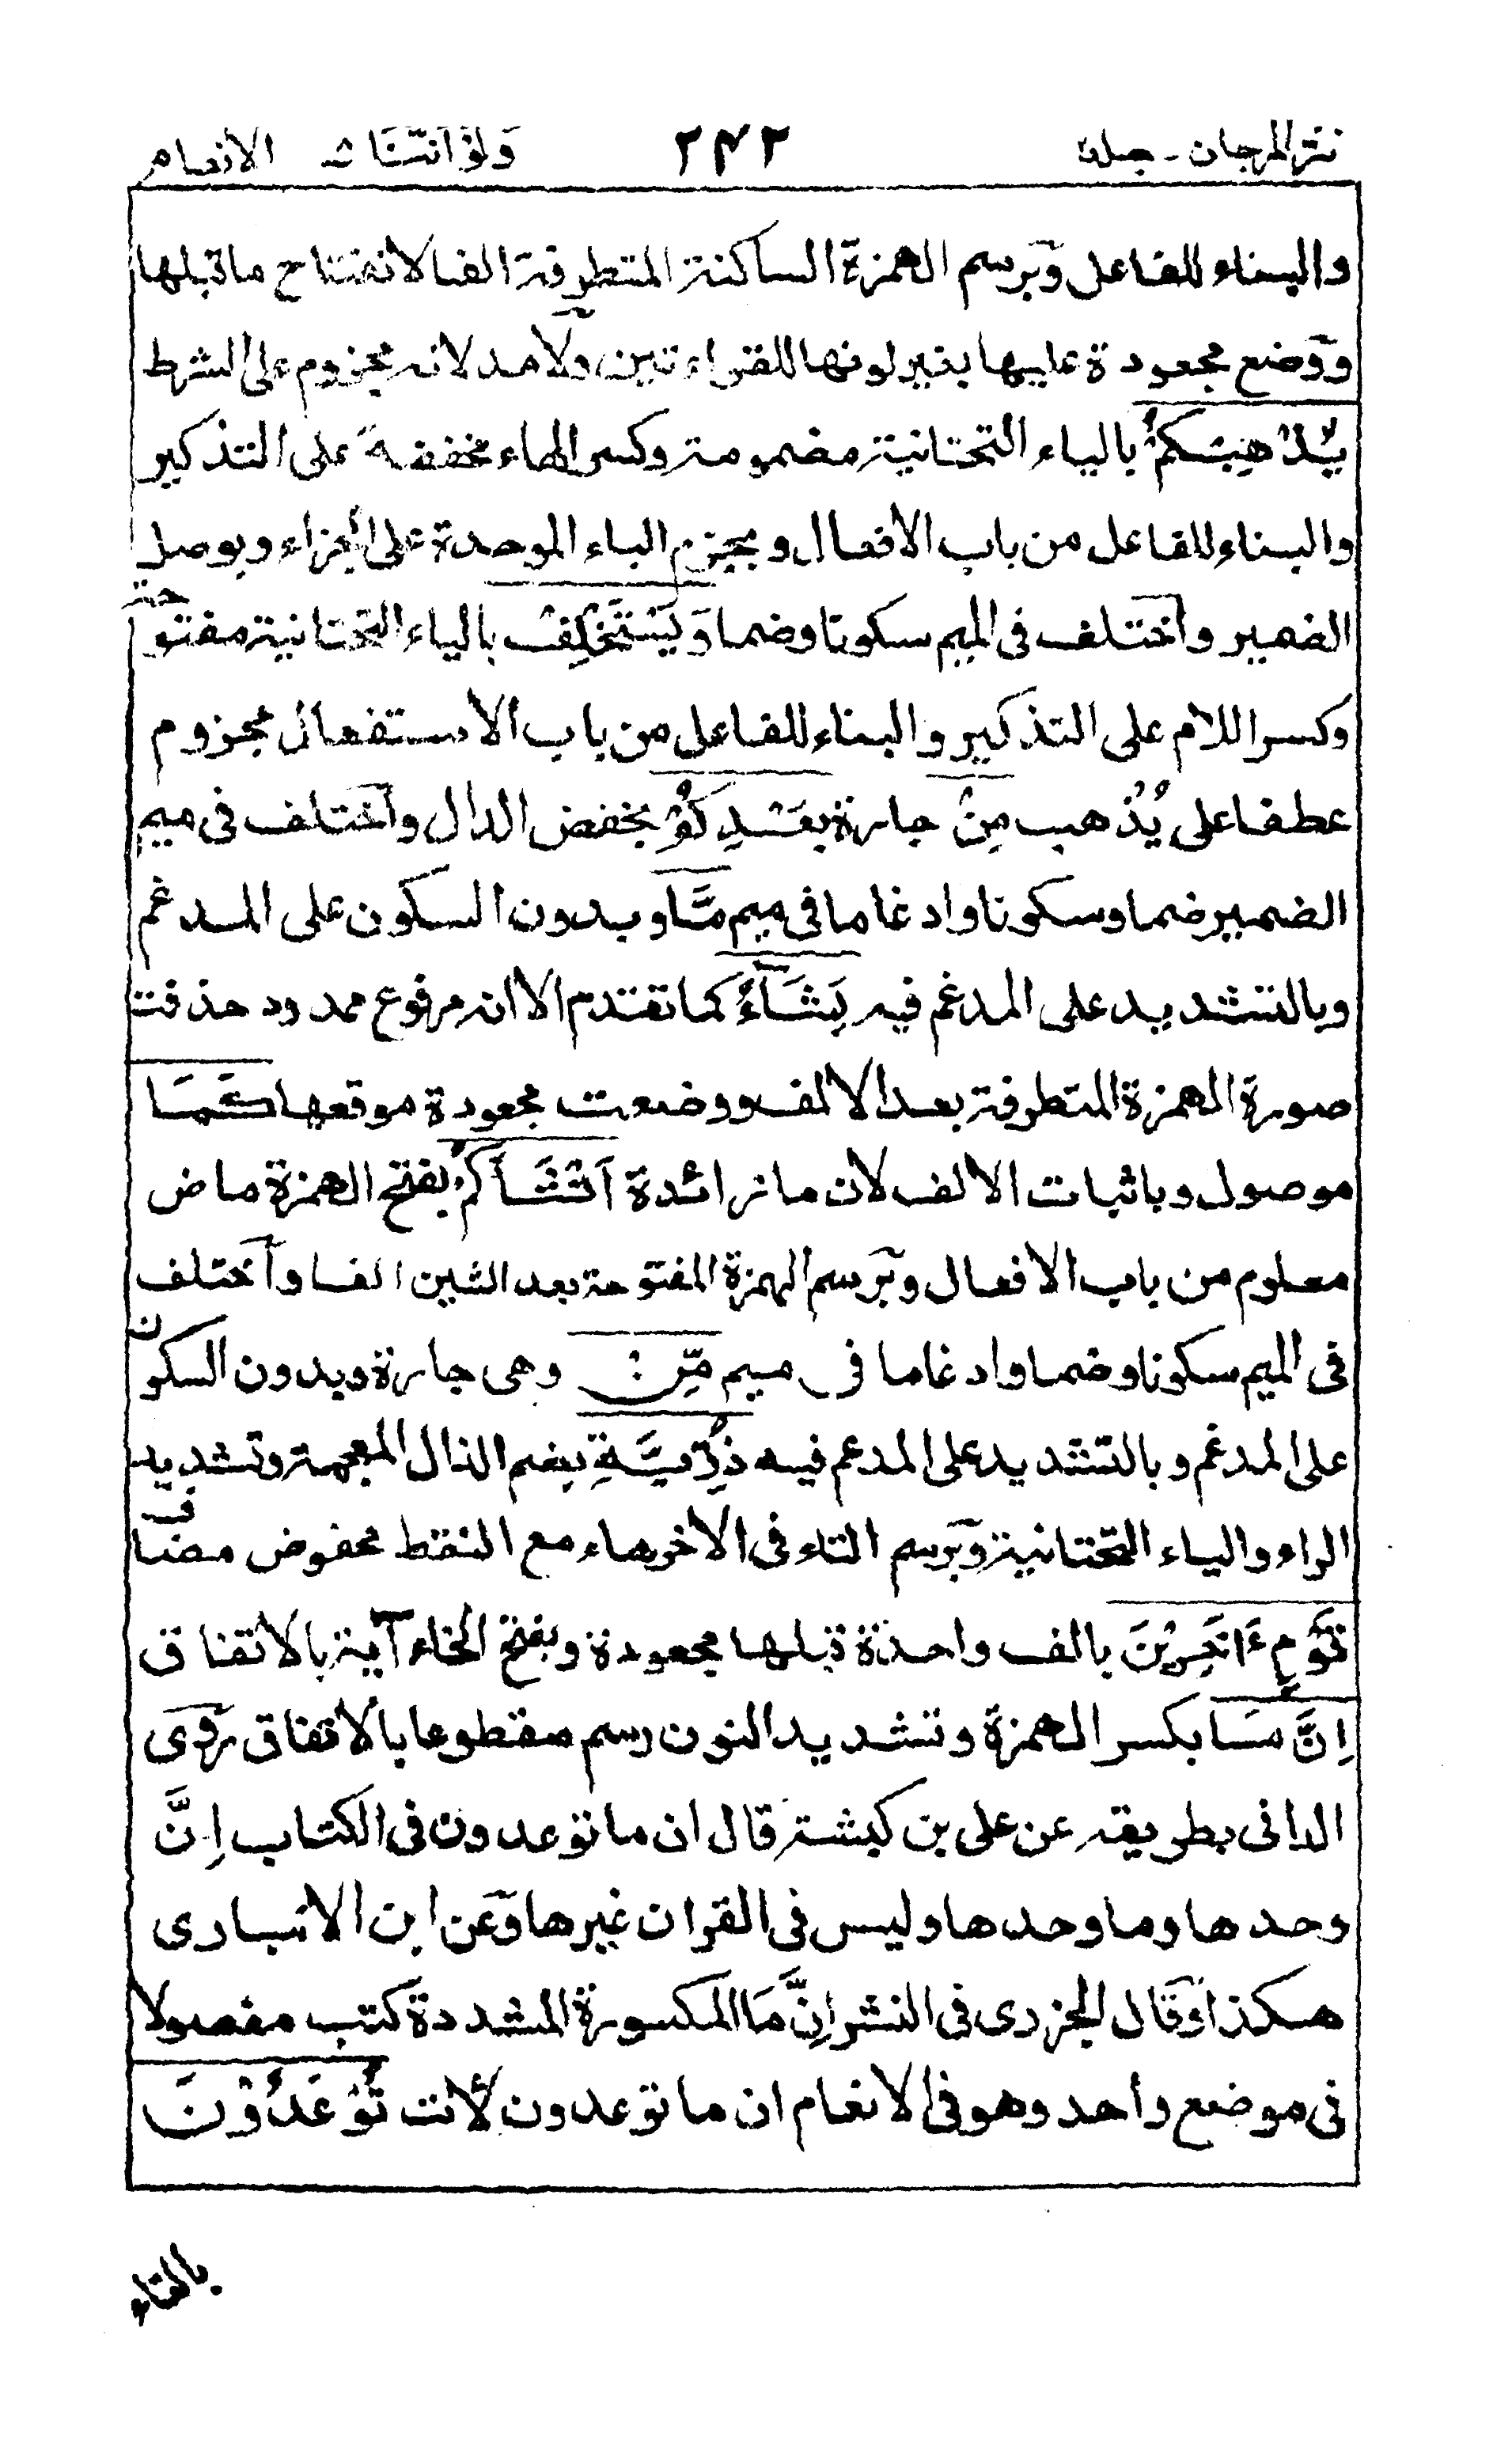 نثر المرجان - جلد ٢٤٢ وَلَوْ اَنَّنَا ٨ الانعام
والبناء للفاعل وبرسم الهمزة الساكنة المتطرفة الفا لانفتاح ما قبلها
ووضع مجعودة عليها بغير لونها للقراءتين ولامد لانه مجزوم على الشرط
يُذْهِبْكُمْ بالياء التحتانية مضمومة وكسر الهاء مخففة على التذكير
والبناء للفاعل من باب الافعال وبجزم الباء الموحدة على الجزاء وبوصل
الضمير واختلف فى الميم سكونا وضما وَيَسْتَخْلِفْ بالياء التحتانية مفتوحة
وكسر اللام على التذكير والبناء للفاعل من باب الاستفعال مجزوم
عطفا على يُذْهب مِنْ جارة بَعْدِكُمْ بخفض الدال واختلف فى ميم
الضمير ضما وسكونا وادغاما فى ميم مَّا وبدون السكون على المدغم
وبالتشديد على المدغم فيه يَشَآءُ كما تقدم الا انه مرفوع ممدود حذفت
صورة الهمزة المتطرفة بعد الالف ووضعت مجعودة موقعها كَمَا
موصول وباثبات الالف لان ما زائدة اَنْشَاَكُمْ بفتح الهمزة ماض
معلوم من باب الافعال وبرسم الهمزة المفتوحة بعد الشين الفا واختلف
فى الميم سكونا وضما وادغاما فى ميم مِّنْ وهى جارة وبدون السكون
على المدغم وبالتشديد على المدغم فيه ذُرِّيَّةِ بضم الذال المعجمة وتشديد
الراء والياء التحتانية وبرسم التاء فى الاخر هاء مع النقط مخفوض مضاف
قَوْمٍ ءَاخَرِيْنَ بالف واحدة قبلها مجعودة وبفتح الخاء آية بالاتفاق
اِنَّ مَا بكسر الهمزة وتشديد النون رسم مقطوعا بالاتفاق روى
الدانى بطريقه عن على بن كبشة قال ان ما توعدون فى الكتاب اِنَّ
وحدها وما وحدها وليس فى القران غيرها وعن ابن الانبارى
هكذا وقال الجزرى فى النشر اِنَّ مَا المكسورة المشددة كتب مفصولا
فى موضع واحد وهو فى الانعام ان ما توعدون لأت تُوْعَدُوْنَ
بالتاء